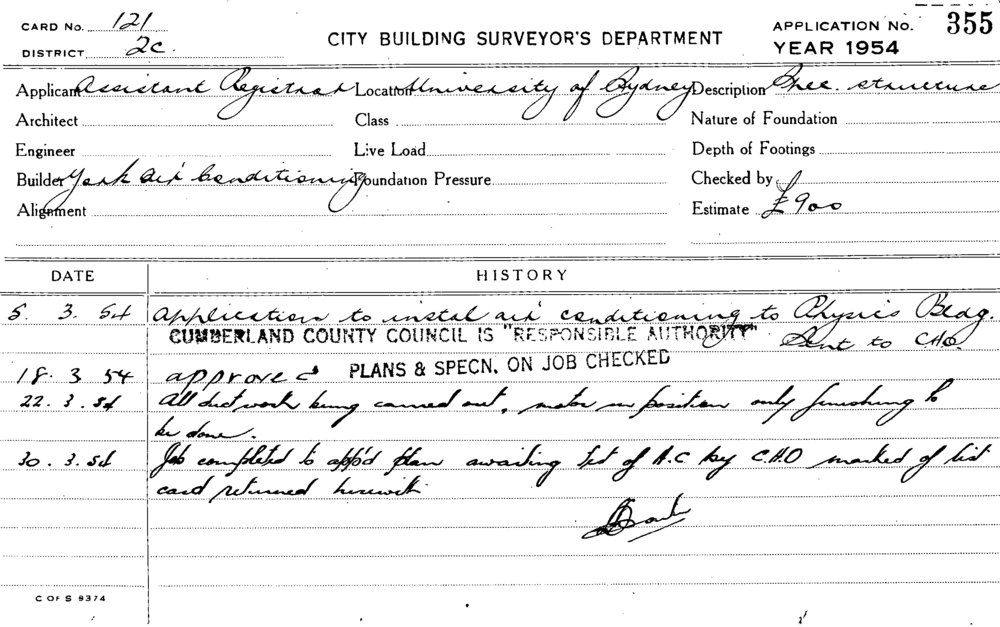 CARD No. 121
DISTRICT 2c.
CITY BUILDING SURVEYOR'S DEPARTMENT
APPLICATION No. 355
YEAR 1954
Applicant Assistant Registrar Location University of Sydney Description Spec. structure
Architect Class Nature of Foundation
Engineer Live Load Depth of Footings
Builder York Air Conditioning Foundation Pressure Checked by
Alignment Estimate £900
DATE HISTORY
5. 3. 54 Application to instal air conditioning to Physics Bldg.
CUMBERLAND COUNTY COUNCIL IS "RESPONSIBLE AUTHORITY" Sent to CHO.
18. 3 54 approved PLANS & SPECN. ON JOB CHECKED
22. 3. 54 All duct work being carried out, motor in position only finishing to
be done.
30. 3. 54 Job completed to app'd plan awaiting test of A.C by C.H.O marked of list
card returned herewith
C OF S 9374